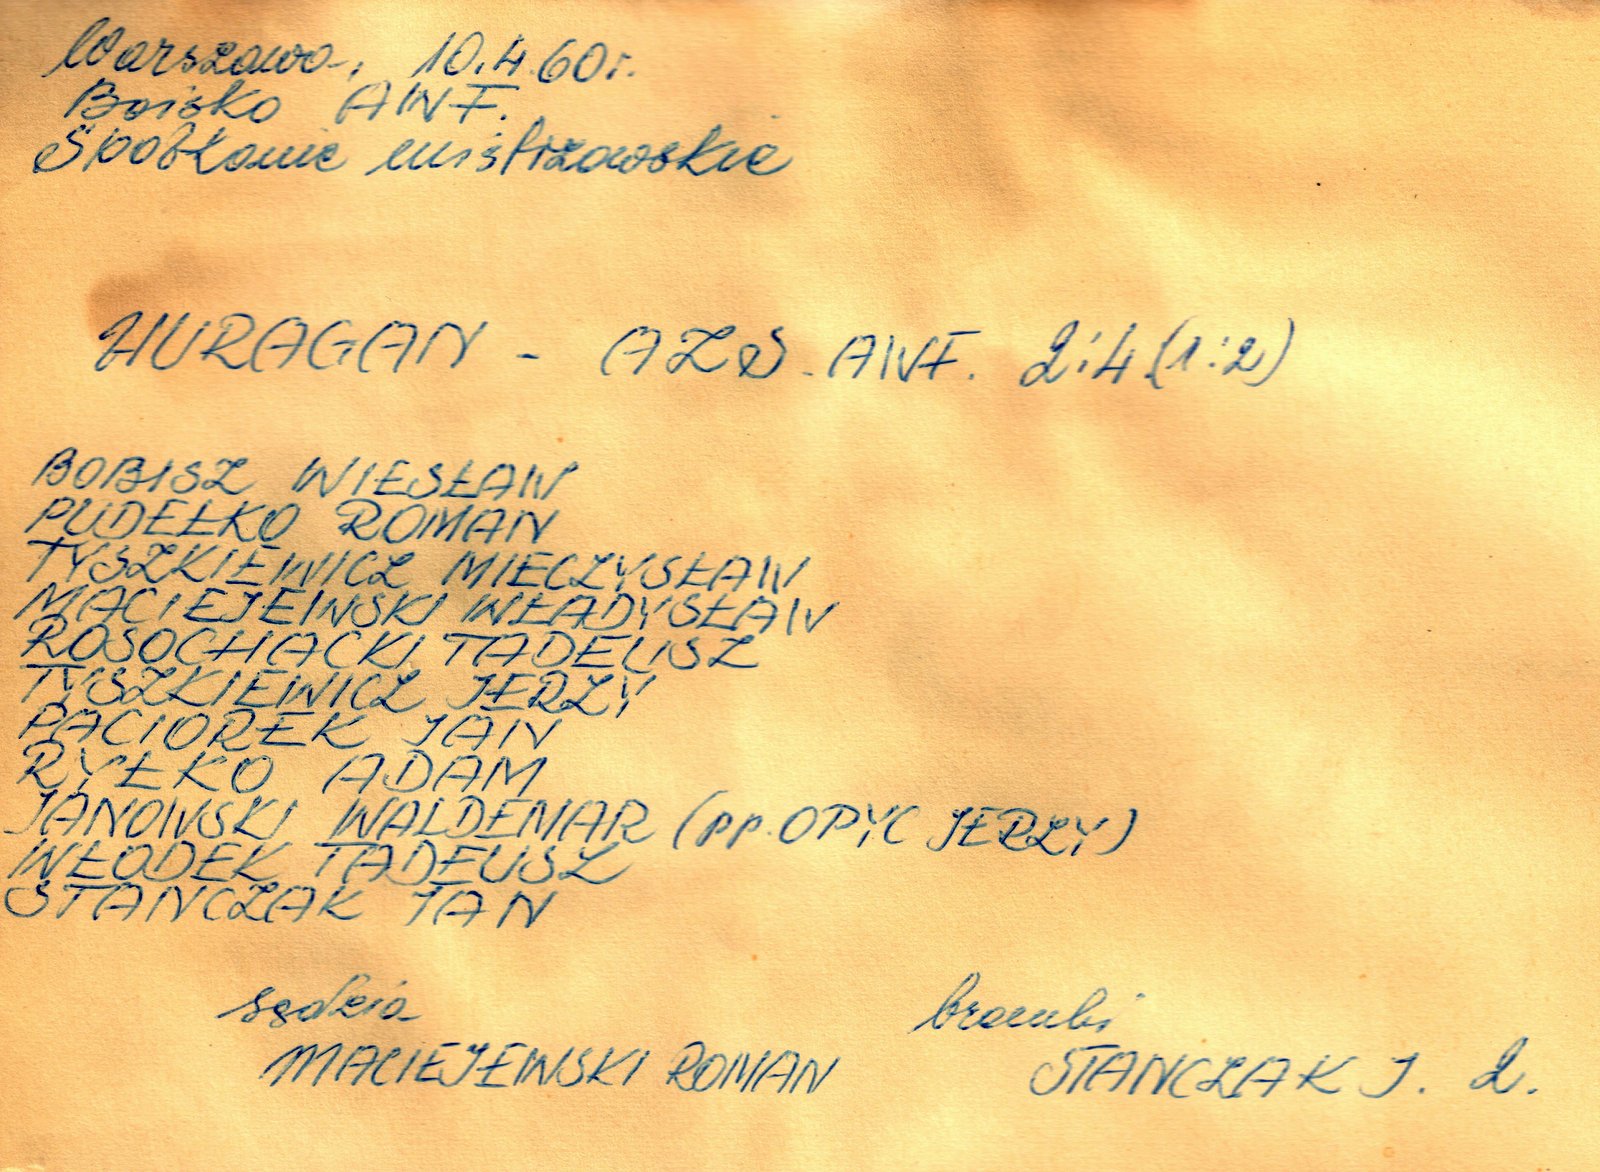 Warszawa, 10.4.60r.
Boisko AWF.
Spotkanie mistrzowskie
HURAGAN - AZS - AWF. 2:4 (1:2)
BOBISZ WIESŁAW
PUDEŁKO ROMAN
TYSZKIEWICZ MIECZYSŁAW
MACIEJEWSKI WŁADYSŁAW
ROSOCHACKI TADEUSZ
TYSZKIEWICZ JERZY
PACIOREK JAN
RYŁKO ADAM
JANOWSKI WALDEMAR (pp. OPYC JERZY)
WŁODEK TADEUSZ
STANCZAK JAN
sędzia bramki
MACIEJEWSKI ROMAN STANCZAK J. 2.